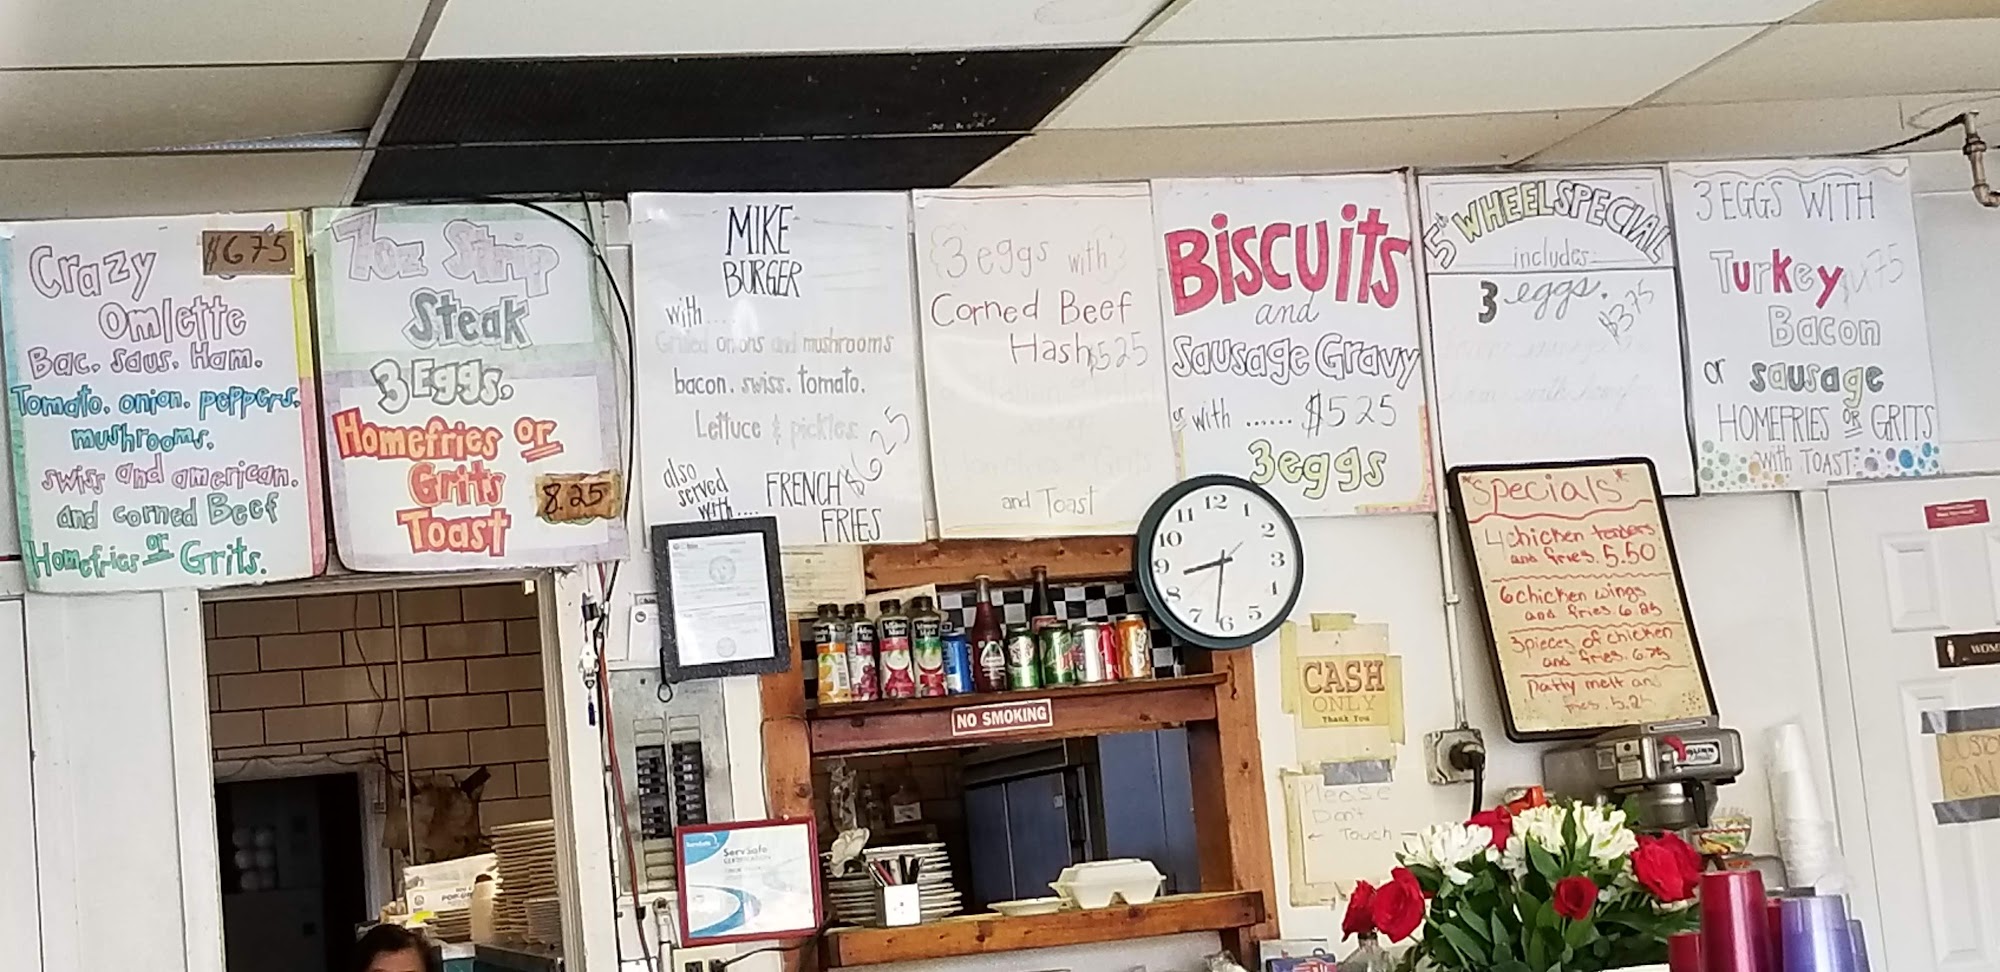 Crazy $6.75
Omlette
Bac. saus. Ham.
Tomato. onion. peppers.
mushrooms.
swiss and american.
and corned Beef
Homefries or Grits.
7oz Strip
Steak
3 Eggs.
Homefries or
Grits 8.25
Toast
MIKE
BURGER
with....
Grilled onions and mushrooms
bacon. swiss. tomato.
Lettuce & pickles
$6.25
also
served
with....
FRENCH
FRIES
3 eggs with
Corned Beef
Hash $5.25
and Toast
BiscuitS
and
Sausage Gravy
or with ...... $5 25
3 eggs
5th WHEEL SPECIAL
includes:
3 eggs.
$3.75
3 EGGS WITH
Turkey
Bacon
or sausage
HOMEFRIES OR GRITS
with TOAST:
*Specials*
4 chicken tenders
and fries. 5.50
6 chicken wings
and fries 6.25
3 pieces of chicken
and fries. 6.75
Patty melt an
fries. 5.25
12
1
2
3
4
5
6
7
8
9
10
11
NO SMOKING
CASH
ONLY
Thank You
Please
Don't
← Touch
ServSafe
ServSafe
CERTIFICATION
BUNN
WOM
CUSTO
ON